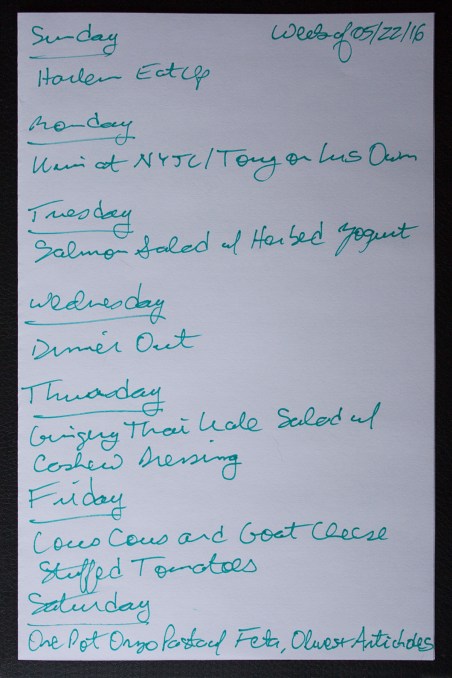 Sunday Week of 05/22/16
Harlem EatUp
Monday
at NYJC/Tony on his Own
Tuesday
Salmon Salad w/ Herbed Yogurt
Wednesday
Dinner Out
Thursday
Gingery Thai Kale Salad w/
Cashew Dressing
Friday
Cous Cous and Goat Cheese
Stuffed Tomatoes
Saturday
One Pot Orzo Pasta w/ Feta, Olives + Artichokes